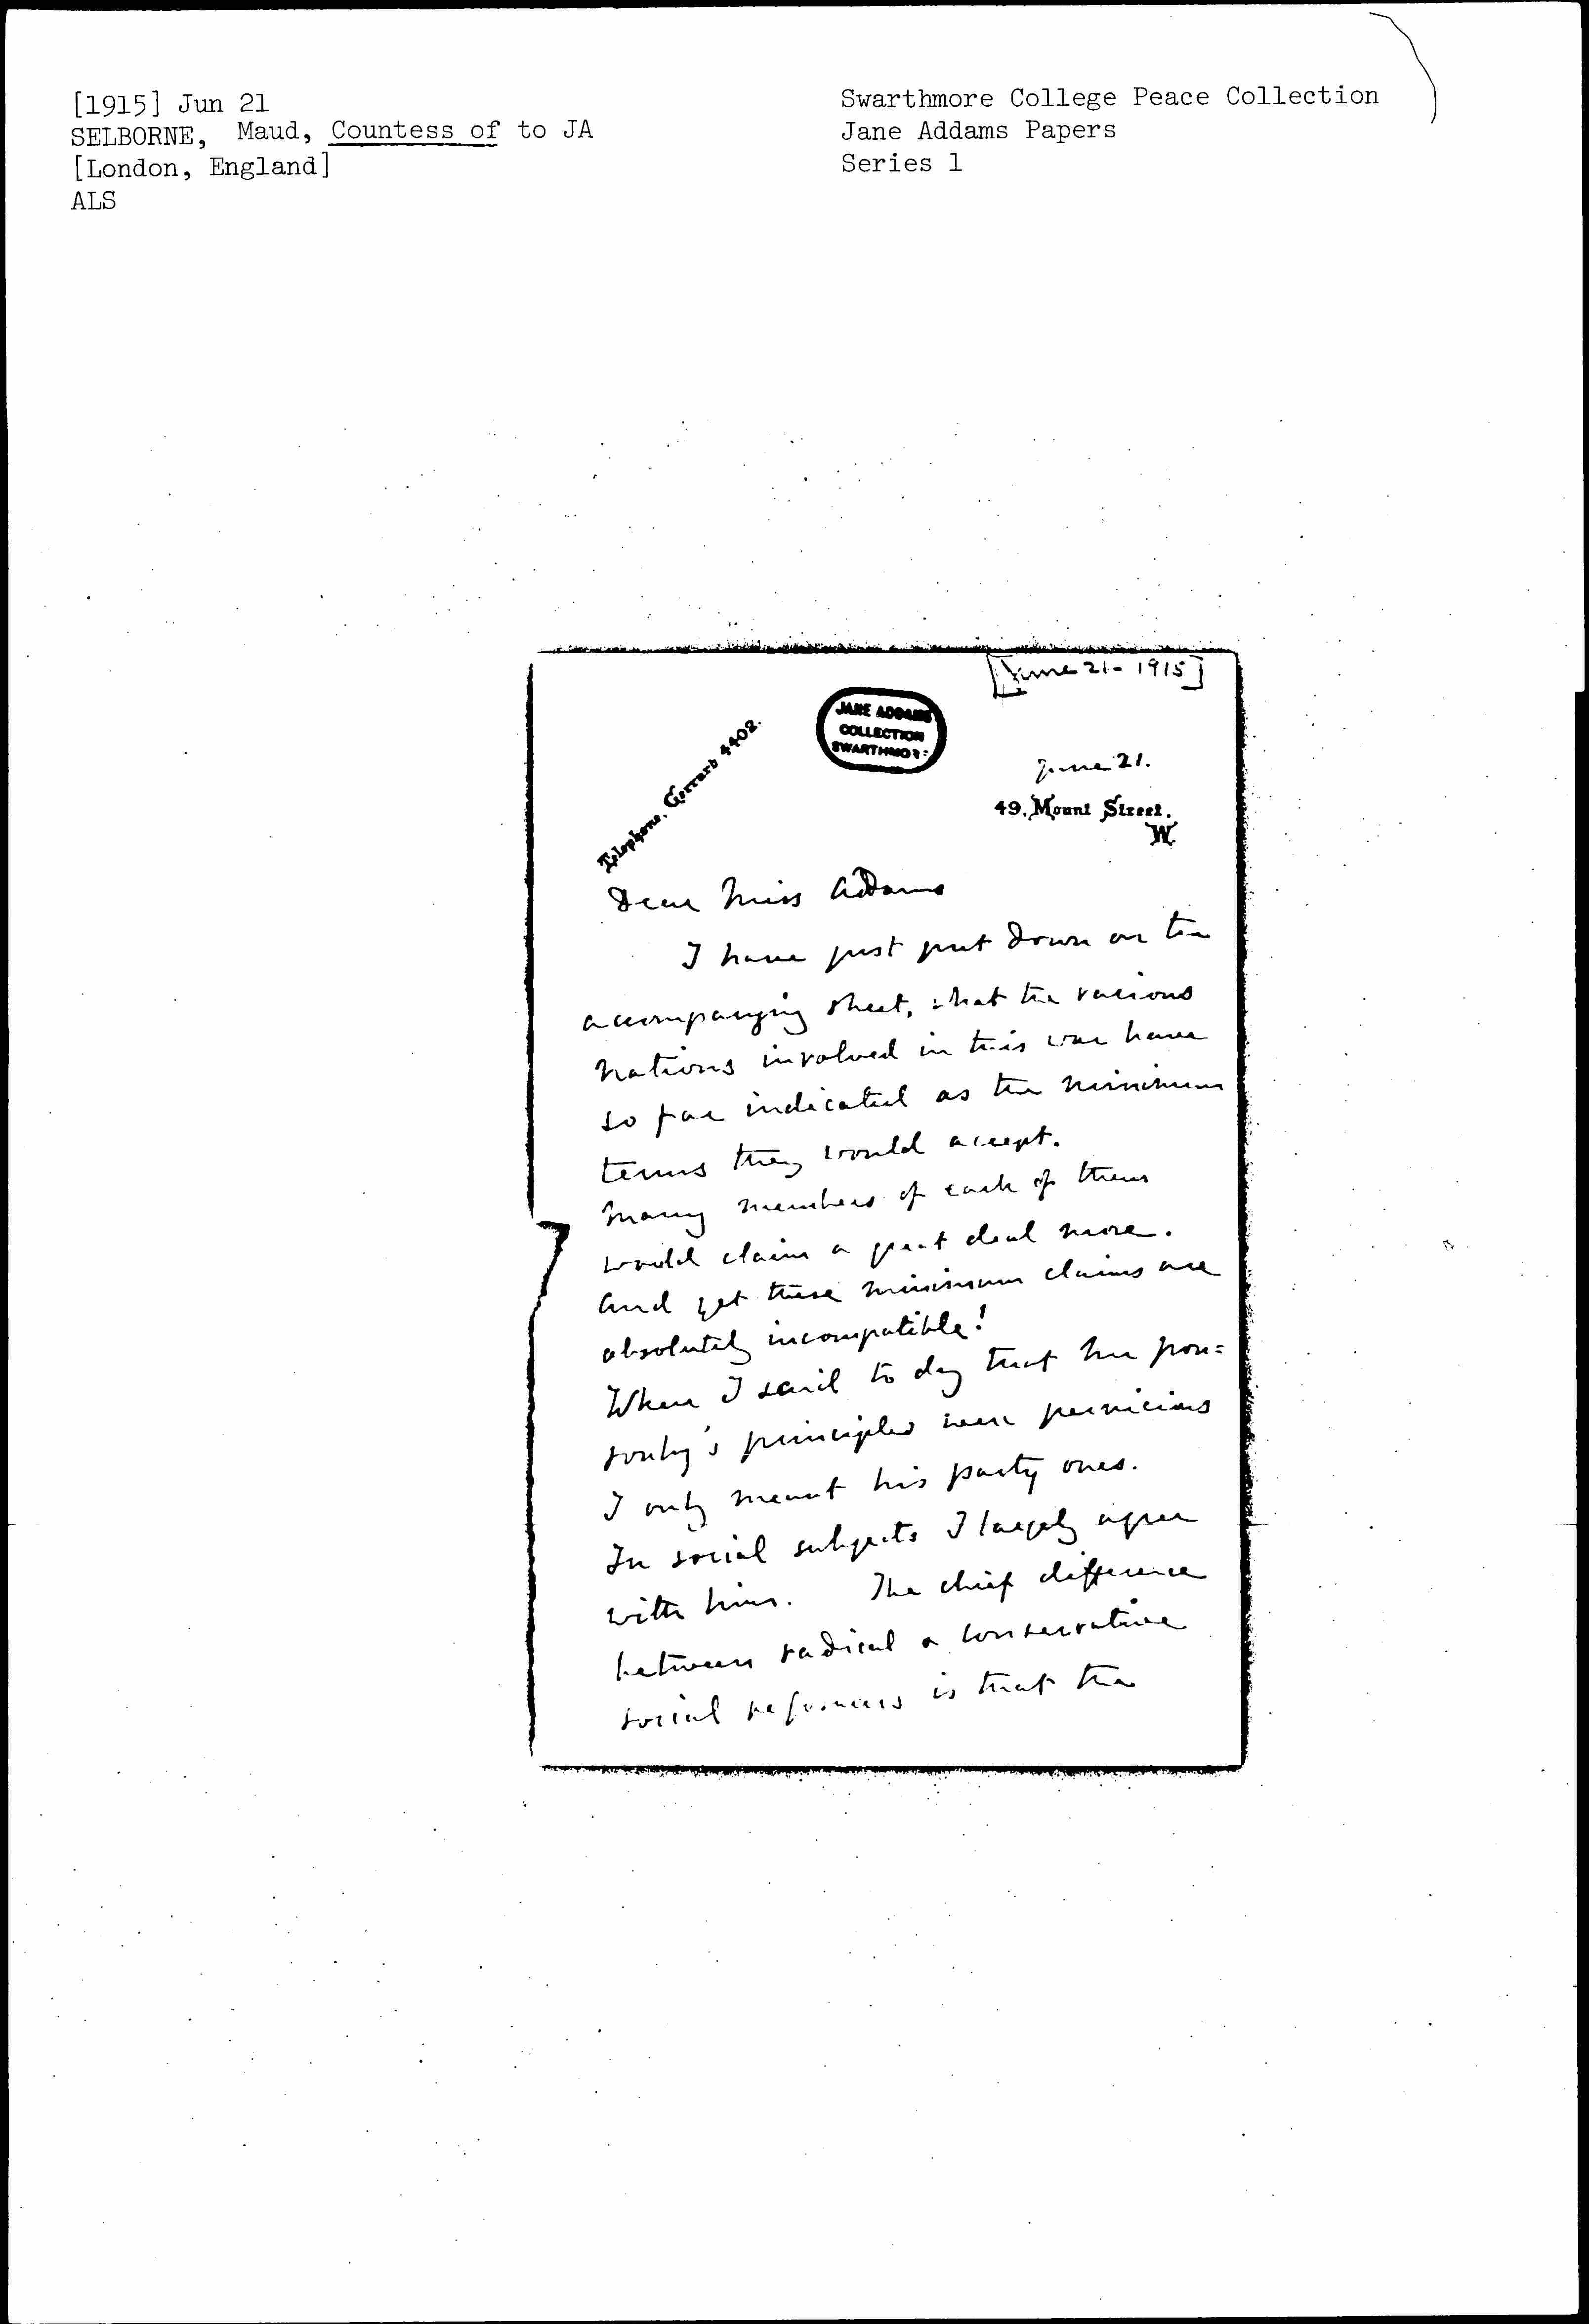 [1915] Jun 21
SELBORNE, Maud, Countess of to JA
[London, England]
ALS
Swarthmore College Peace Collection
Jane Addams Papers
Series 1
[June 21 - 1915]
JANE ADDAMS
COLLECTION
SWARTHMORE
Telephone, Gerrard 4402.
June 21.
49, Mount Street.
W.
Dear Miss Addams
I have just put down on the
accompanying sheet, what the various
nations involved in this war have
so far indicated as the minimum
terms they would accept.
Many members of each of them
would claim a great deal more.
And yet these minimum claims are
absolutely incompatible!
When I said to day that Mr Pon=
sonby's principles were pernicious
I only meant his party ones.
In social subjects I largely agree
with him. The chief difference
between radical & conservative
social reformers is that the